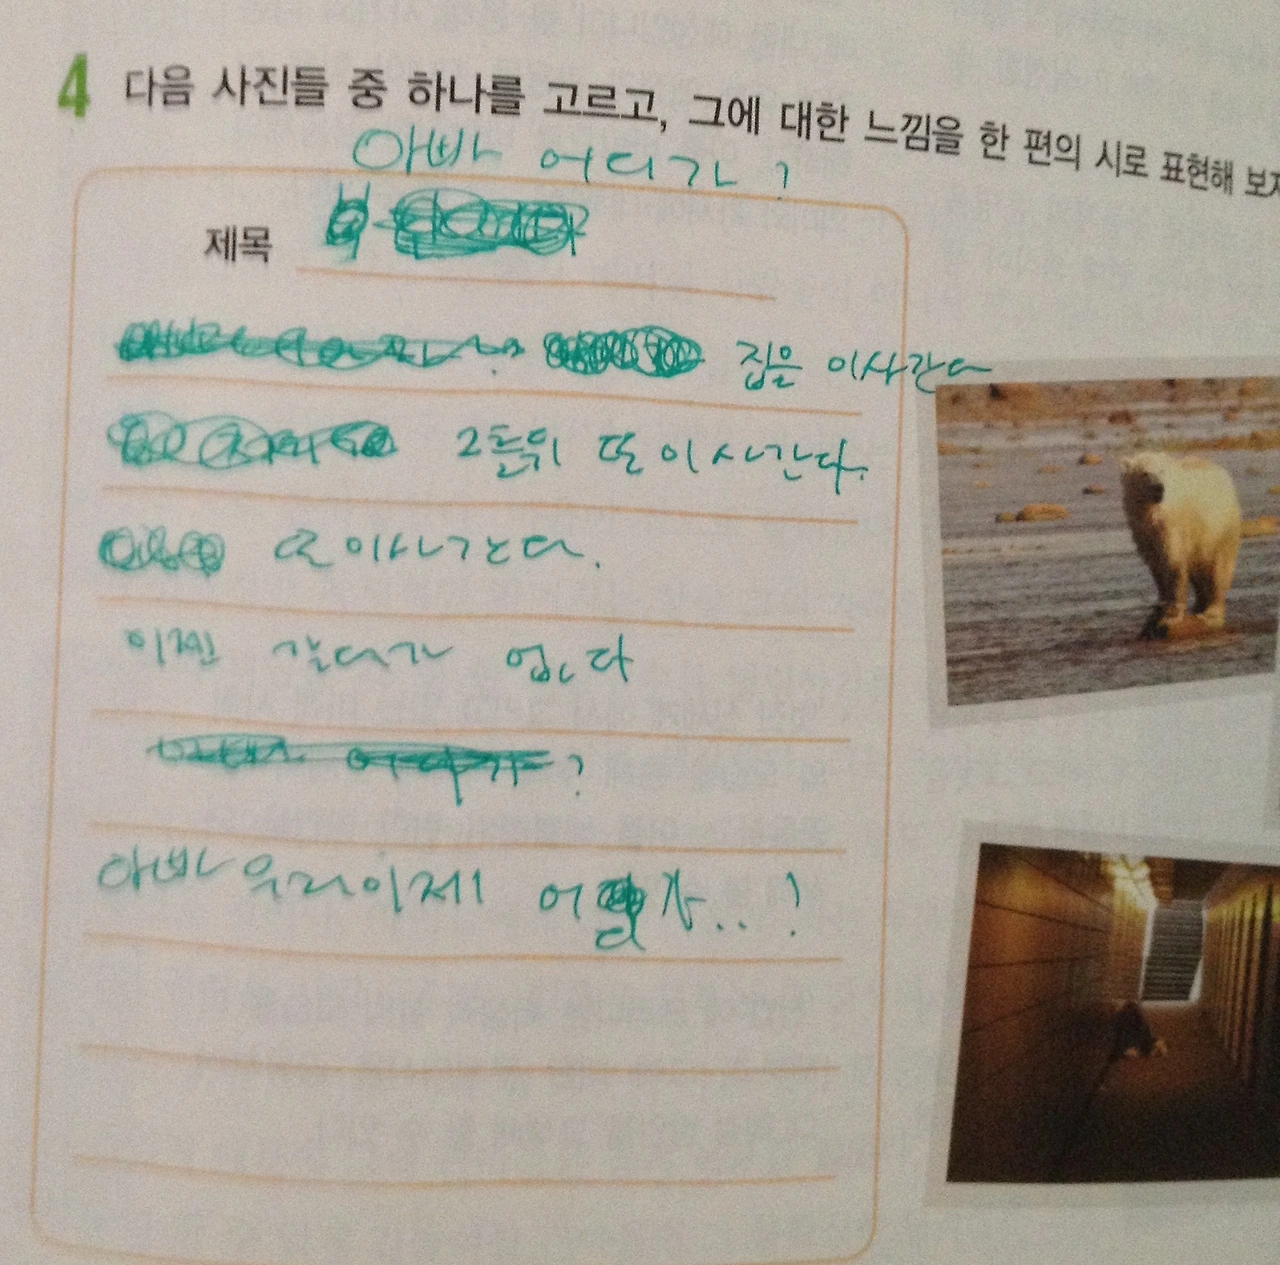 4 다음 사진들 중 하나를 고르고, 그에 대한 느낌을 한 편의 시로 표현해 보자
아빠 어디가?
제목
집을 이사간다
2틀뒤 또 이사간다.
또 이사간다.
이젠 갈데가 없다
?
아빠 우리이제 어디가..?